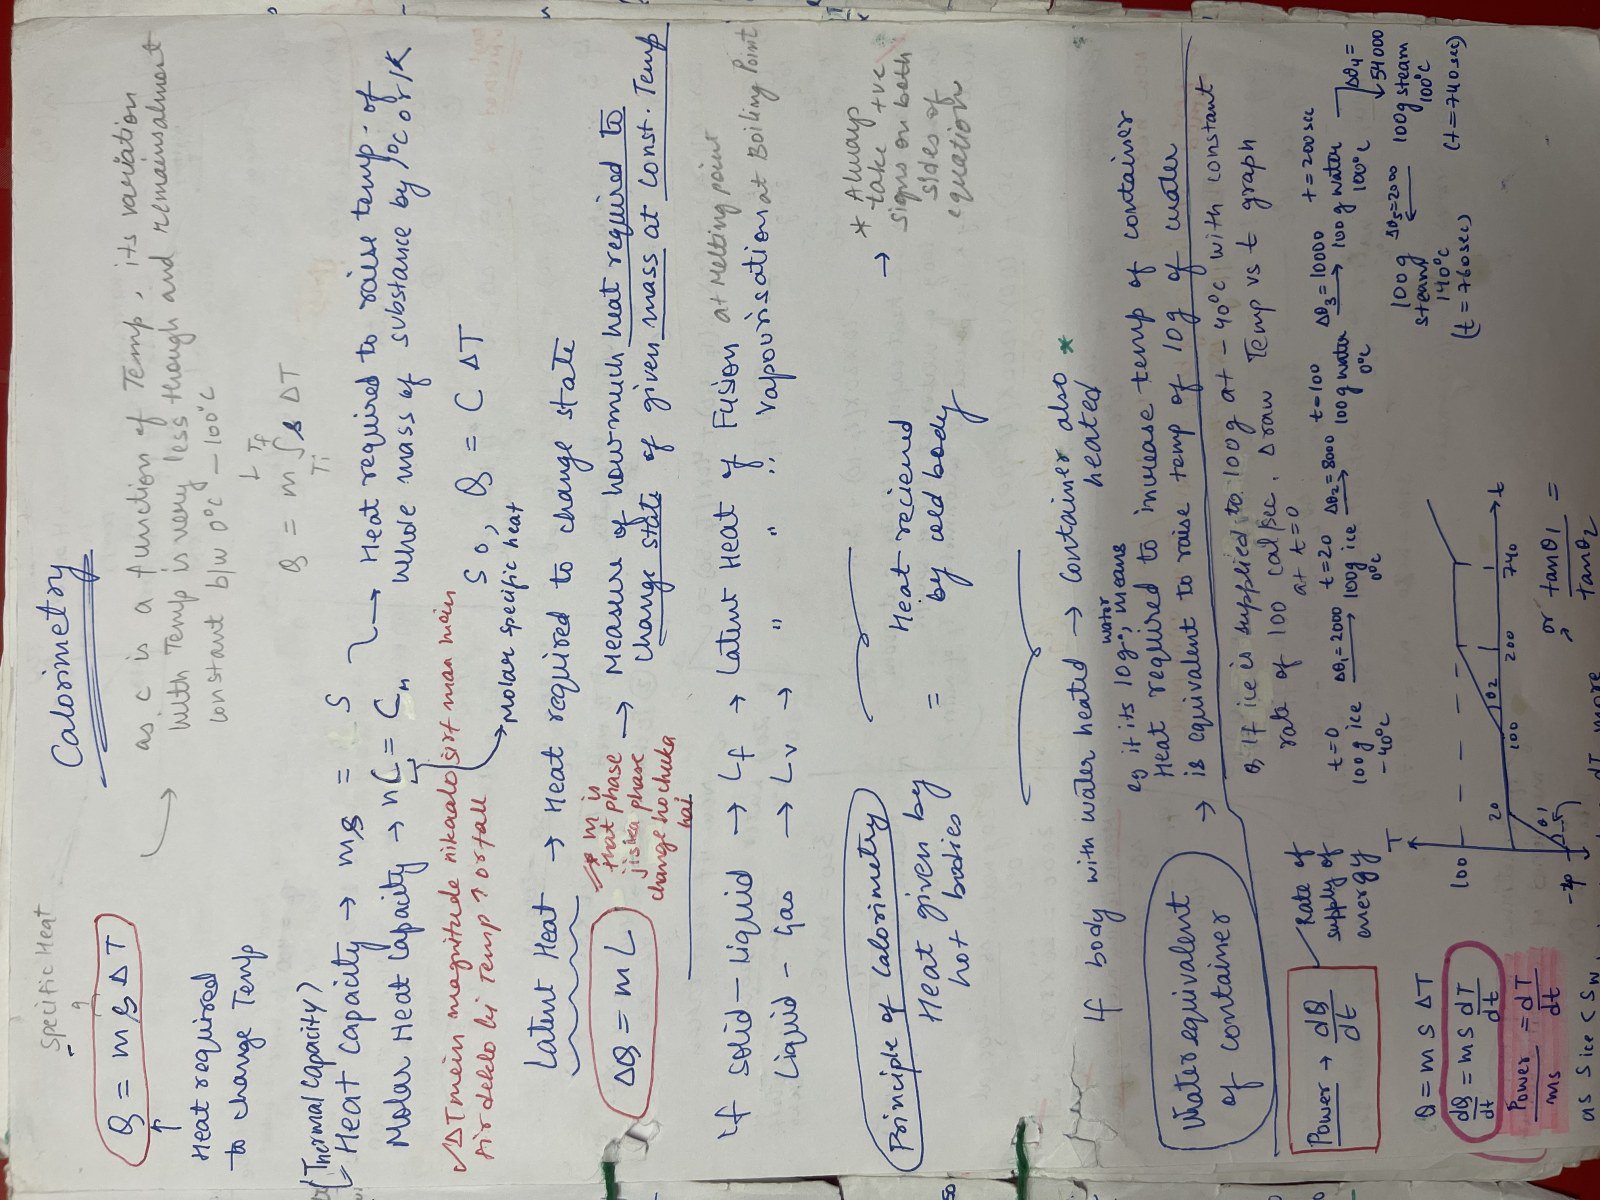 Calorimetry
Specific Heat
Q = m s ΔT
Heat required
to change Temp
as c is a function of Temp, its variation
with Temp is very less though and remains almost
constant b/w 0°c – 100°c
Q = m ∫ s ΔT
Tf
Ti
(Thermal Capacity)
Heat Capacity → ms = S → Heat required to raise temp. of
whole mass of substance by 1°C or 1K
Molar Heat Capacity → nC = Cn
so, Q = C ΔT
Molar specific heat
ΔT mein magnitude nikaalo sirf man mein
Air dekho ki Temp ↑ or fall
Latent Heat → Heat required to change state
ΔQ = m L
* m is
that phase
jiska phase
change ho chuka
hai
→ Measure of how much heat required to
change state of given mass at const. Temp
If solid – Liquid → Lf → Latent Heat of Fusion at Melting point
Liquid – Gas → Lv → " " " Vapourisation at Boiling Point
Principle of Calorimetry
Heat given by
hot bodies
=
Heat recieved
by cold body
→ * Always
take +ve
signs on both
sides of
equation
If body with water heated → Container also *
heated
Water equivalent
of container
eg if its 10g water, means
Heat required to increase temp of container
is equivalent to raise temp of 10g of water
Power → dQ/dt
Rate of
supply of
energy
Q, If ice is supplied to 100g at – 40°c with constant
rate of 100 cal/sec. Draw Temp vs t graph
at t = 0
t=0 ΔQ1 = 2000 t=20 ΔQ2 = 8000 t=100 ΔQ3 = 10000 t=200 sec
100g ice → 100g ice → 100g water → 100g water
-40°c 0°c 0°c 100°c
ΔQ4 =
↓ 54000
100g ΔQ5=2000 100g steam
steam ← 100°c
140°c
(t=760sec) (t=740sec)
Q = m s ΔT
dQ/dt = m s dT/dt
Power/ms = dT/dt
T
100
-40
20
100
200
740
t
θ1
θ2
or tanθ1/tanθ2 =
as Sice < Sw
dT more